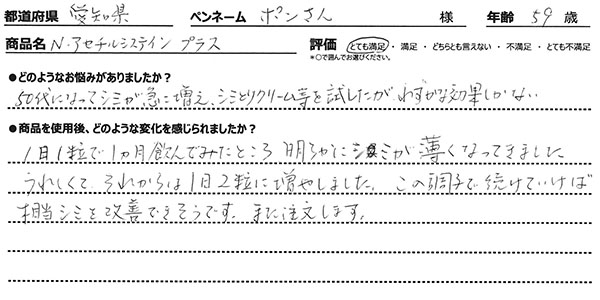 都道府県 愛知県 ペンネーム ポンさん 様 年齢 59 歳
商品名 N・アセチルシステイン プラス 評価 とても満足 ・ 満足 ・ どちらとも言えない ・ 不満足 ・ とても不満足
*○で囲んでお選びください。
●どのようなお悩みがありましたか?
50代になってシミが急に増え、シミとりクリーム等を試したが、わずかな効果しかない
●商品を使用後、どのような変化を感じられましたか?
1日1粒で1ヵ月飲んでみたところ 明らかにシミが薄くなってきました
うれしくて それからは1日2粒に増やしました。この調子で続けていけば
相当シミを改善できそうです。また注文します。